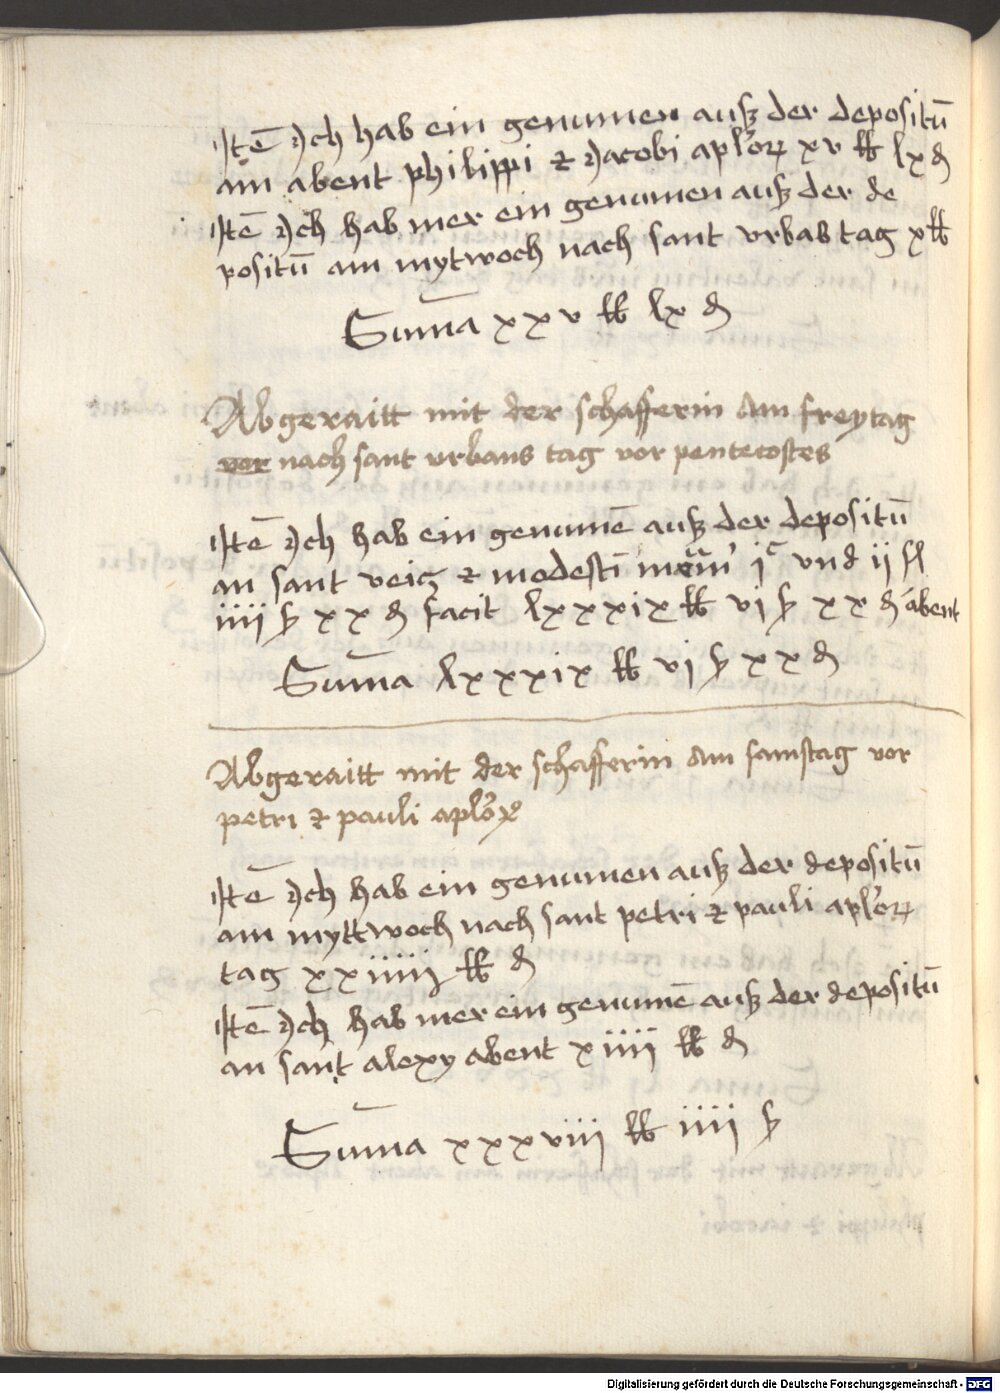 Itē Ich hab ein genumen auß der depositū
am abent philippi et Jacobi aplor xv lb lx d
Itē Ich hab mer ein genumen auß der de
positū am mytwoch nach sant vrbās tag x lb
Suma xxv lb lx d
Abgeraitt mit der schafferin Am freytag
vor nach sant vrbans tag vor pentecostes
Itē Ich hab ein genumē auß der depositū
an sant veit et modesti jc vnd ij fl
iiij ß xx d facit lxxxix lb vj ß xx d abent
Suma lxxxix lb vj ß xx d
Abgeraitt mit der schafferin Am samstag vor
petri et pauli aplor
Itē Ich hab ein genumen auß der depositū
am myttwoch nach sant petri et pauli aplor
tag xxiiij lb d
Itē Ich hab mer ein genumē auß der depositū
an sant alexy abent xiiij lb d
Suma xxxviij lb iiij ß
Digitalisierung gefördert durch die Deutsche Forschungsgemeinschaft - DFG